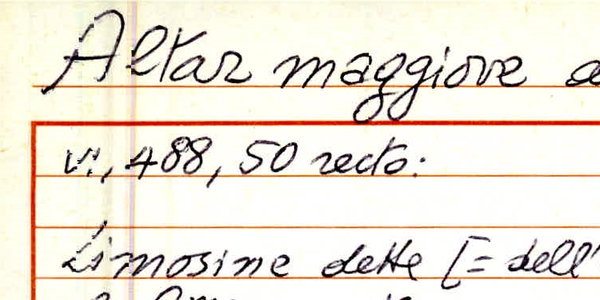 Altar maggiore
vi, 488, 50 recto:
Limosine dette [= dell'